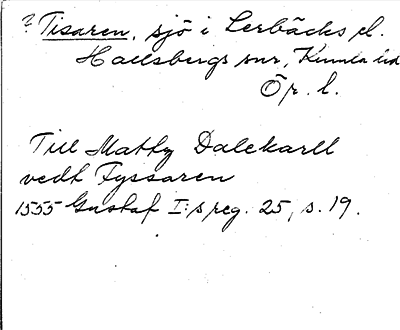 ? Tisaren, sjö i Lerbäcks el.
Hallsbergs snr, Kumla hd
Ör. l.
Till Matty Dalekarll
vedt Tyssaren
1555 Gustaf I:s reg. 25, s. 19.